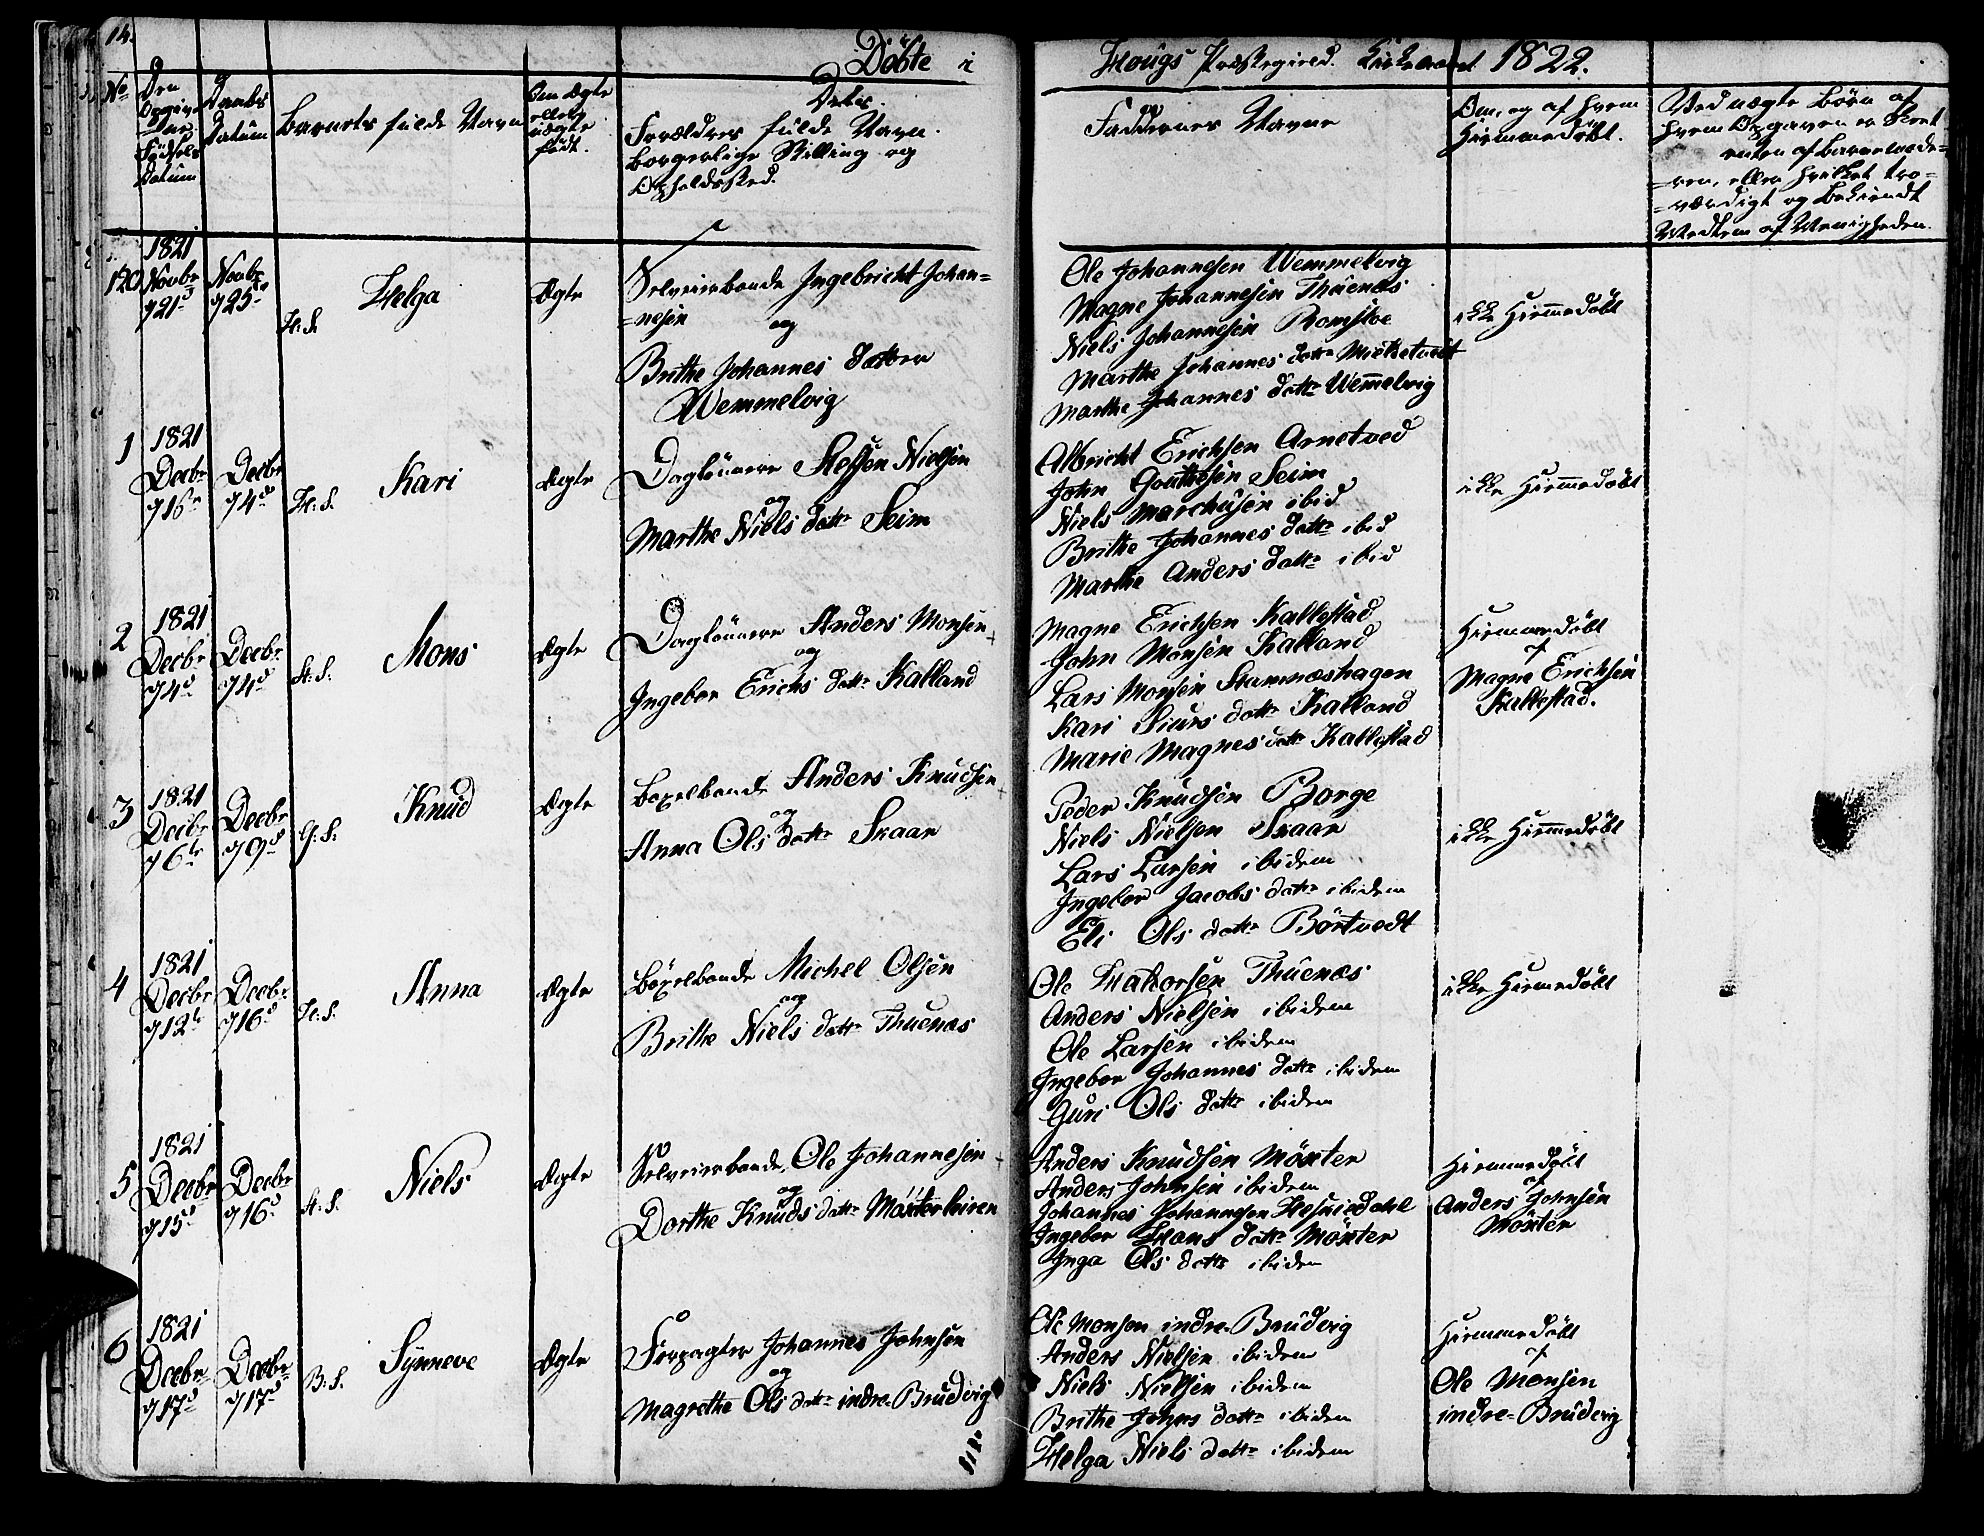 14.
Döbte i
Hougs Præstegield. Kirkeaaret 1822.
No
Den
Opgivne
Fødsels
Datum
Daabs
Datum
Barnets fulde Navn
Om Ægte
eller
uægte
født.
Dets
Forældres fulde Navn.
borgerlige Stilling og
Opholdssted.
Faddernes Navne
Om, og af hvem
Hiemmedöbt.
Ved uægte Börn af
hvem Opgaven er skeet
enten af Barnemode=
=ren, eller hvilket tro=
=værdigt og bekiendt
Medlem af Menigheden.
120
1821
Novbr
d 21d
Novbr
d 25te
H: S.
Helga
Ægte
Selveierbonde Ingebricht Johan=
=nesen og
Brithe Johannes datter
Wemmelvig
Ole Johannesen Wemmelvig
Magne Johannesen Thuenæs
Niels Johannesen Romsloe
Marthe Johannes datr Mieltetvedt
Marthe Johannes datr Wemmelvig
ikke Hiemedöbt
1
1821
Decbr
d 1ste
Decbr
d 4d
H: S.
Kari
Ægte
Daglönnere Steffen Nielsen
og
Marthe Niels datr Seim
Albricht Erichsen Arnetved
John Gouthesen Seim
Niels Marchusen ibid
Brithe Johannes datr ibid
Marthe Anders datr ibid
ikke Hiemedöbt
2
1821
Decbr
d 4d
Decbr
d 4d
H: S.
Mons
Ægte
Daglönnere Anders Monsen
og
Ingebor Erichs datr Kalland
Magne Erichsen Kallestad
John Monsen Kalland
Lars Monsen Stamnæshagen
Kari Siurs datr Kalland
Marie Magnes datr Kallestad
Hiemmedöbt
af
Magne Erichsen
Kallestad.
3
1821
Decbr
d 6te
Decbr
d 9d
G: S.
Knud
Ægte
Böxelbonde Anders Knudsen
og
Anna Ols datr Skaar
Peder Knudsen Borge
Niels Nielsen Skaar
Lars Larsen ibidem
Ingebor Jacobs datr ibidem
Eli Ols datr Börtvedt
ikke Hiemmedöbt
4
1821
Decbr
d 12te
Decbr
d 16d
H: S.
Anna
Ægte
Böxelbonde Michel Olsen
og
Brithe Niels datr Thuenæs
Ole Haldorsen Thuenæs
Anders Nielsen ibidem
Ole Larsen ibidem
Ingebor Johannes datr ibidem
Guri Ols datr ibidem
ikke Hiemedöbt
5
1821
Decbr
d 15d
Decbr
d 16d
H: S.
Niels
Ægte
Selveierbonde Ole Johannesen
og
Dorthe Knuds datr Möxterleiren
Anders Knudsen Möxter
Anders Johnsen ibidem
Johannes Johannesen Hesniedahl
Ingebor Hans datr Möxter
Inga Ols datr ibidem
Hiemmedöbt
af
Anders Johnsen
Möxter
6
1821
Decbr
d 17d
Decbr
d 17d
B: S.
Synneve
Ægte
Forpagter Johannes Johnsen
og
Magrethe Ols datr indre Brudvig
Ole Monsen indre Brudvig
Anders Nielsen ibidem
Niels Nielsen ibidem
Brithe Johns datr ibidem
Helga Niels datr ibidem
Hiemmedöbt
af
Ole Monsen
indre=Brudvig